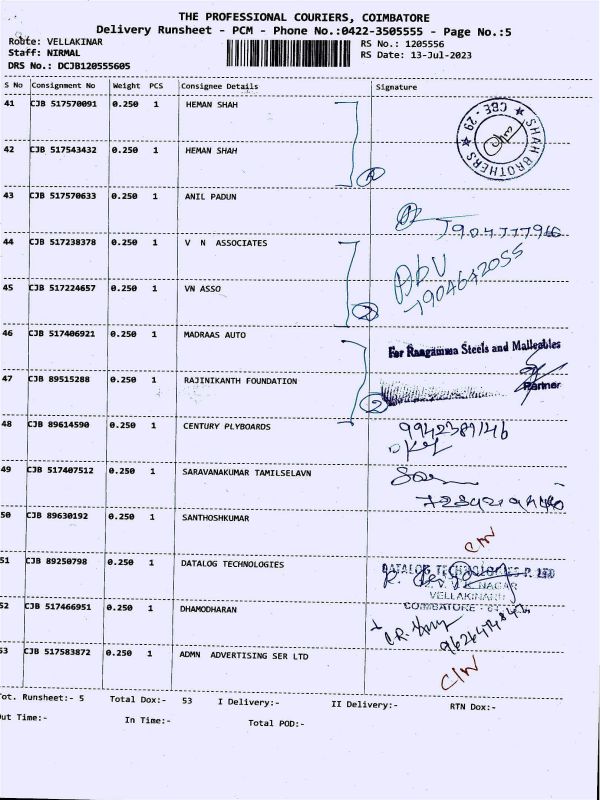 THE PROFESSIONAL COURIERS, COIMBATORE
Delivery Runsheet - PCM - Phone No.:0422-3505555 - Page No.:5
Route: VELLAKINAR
RS No.: 1205556
Staff: NIRMAL
RS Date: 13-Jul-2023
DRS No.: DCJB120555605
S No Consignment No Weight PCS Consignee Details Signature
41 CJB 517570091 0.250 1 HEMAN SHAH
SHAH BROTHERS ★ CBE - 29 ★
42 CJB 517543432 0.250 1 HEMAN SHAH
43 CJB 517570633 0.250 1 ANIL PADUN
7904777966
44 CJB 517238378 0.250 1 V N ASSOCIATES
45 CJB 517224657 0.250 1 VN ASSO
7904642055
2
46 CJB 517406921 0.250 1 MADRAAS AUTO
For Rangamma Steels and Malleables
47 CJB 89515288 0.250 1 RAJINIKANTH FOUNDATION
Partner
2
48 CJB 89614590 0.250 1 CENTURY PLYBOARDS
9942389146
49 CJB 517407512 0.250 1 SARAVANAKUMAR TAMILSELAVN
50 CJB 89630192 0.250 1 SANTHOSHKUMAR
C/N
51 CJB 89250798 0.250 1 DATALOG TECHNOLOGIES
DATALOG TECHNOLOGIES P. LTD
NAGAR
VELLAKINAR
COIMBATORE
52 CJB 517466951 0.250 1 DHAMODHARAN
53 CJB 517583872 0.250 1 ADMN ADVERTISING SER LTD
C/N
Tot. Runsheet:- 5 Total Dox:- 53 I Delivery:- II Delivery:- RTN Dox:-
Out Time:- In Time:- Total POD:-